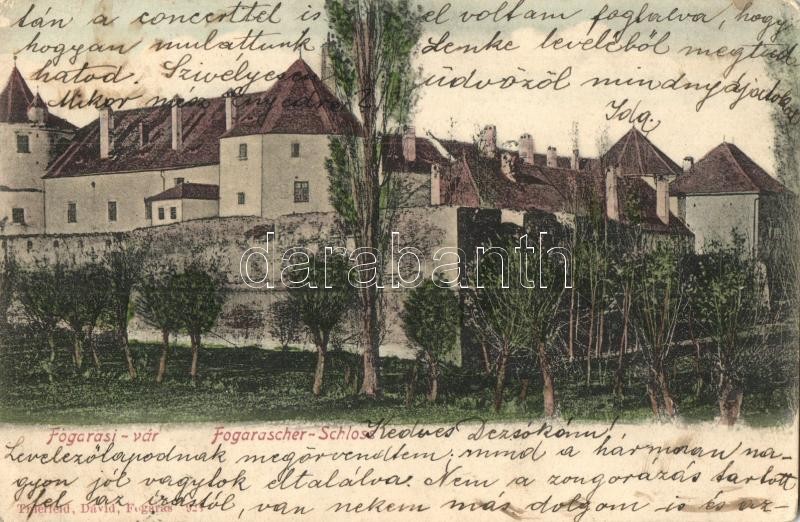 tán a concerttel is el voltam foglalva, hogy
hogyan mulattunk Lenke leveléből megtud
hatod. Szivélyesen üdvözöl mindnyájatokat
Mikor mész Enyedre?
Ida.
darabanth.com
Fogarasi-vár Fogarascher-Schloss
Kedves Dezsőkém!
Levelezőlapodnak megörvendtem: mind a hárman na-
gyon jól vagytok eltalálva. Nem a zongorázás tartott
fel az irástól, van nekem más dolgom is és az-
Thierfeld, David, Fogaras